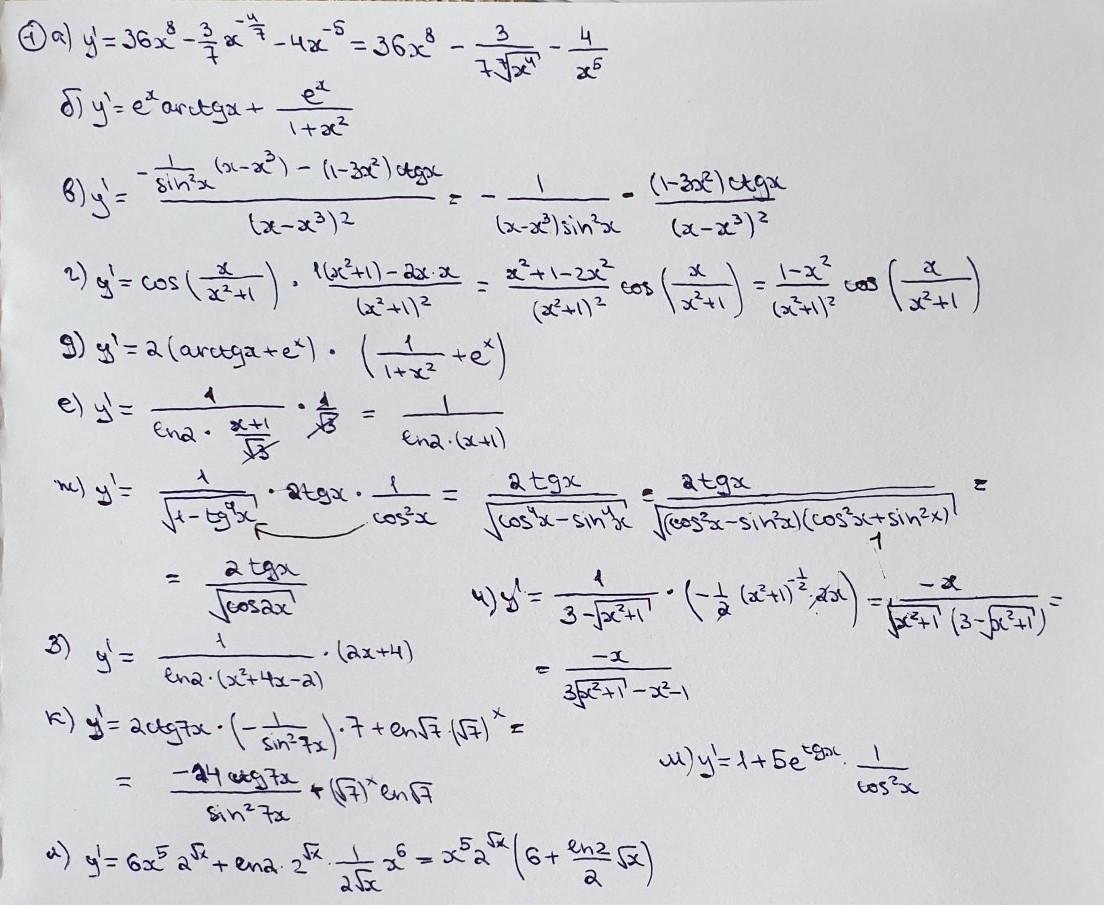 ① а) y' = 36x⁸ - 3/7 x^(-4/7) - 4x⁻⁵ = 36x⁸ - 3/(7 ⁷√(x⁴)) - 4/x⁵
б) y' = eˣ arctgx + eˣ/(1+x²)
в) y' = (-1/sin²x (x-x³) - (1-3x²) ctgx)/(x-x³)² = - 1/((x-x³) sin²x) - (1-3x²) ctgx/(x-x³)²
г) y' = cos(x/(x²+1)) · (1(x²+1) - 2x·x)/(x²+1)² = (x²+1-2x²)/(x²+1)² cos(x/(x²+1)) = (1-x²)/(x²+1)² cos(x/(x²+1))
д) y' = 2(arctgx + eˣ) · (1/(1+x²) + eˣ)
е) y' = 1/(ln2 · (x+1)/√3) · 1/√3 = 1/(ln2·(x+1))
ж) y' = 1/√(1-tg⁴x) · 2tgx · 1/cos²x = 2tgx/√(cos⁴x - sin⁴x) = 2tgx/√((cos²x-sin²x)(cos²x+sin²x)) =
1
= 2tgx/√(cos2x)
и) y' = 1/(3-√(x²+1)) · (-1/2 (x²+1)^(-1/2) · 2x) = -x/(√(x²+1) (3-√(x²+1))) =
з) y' = 1/(ln2·(x²+4x-2)) · (2x+4)
= -x/(3√(x²+1) - x² - 1)
к) y' = 2ctg7x · (-1/sin²7x) · 7 + ln√7 · (√7)ˣ =
= -14 ctg7x/sin²7x + (√7)ˣ ln√7
м) y' = 1 + 5e^(tgx) · 1/cos²x
л) y' = 6x⁵ 2^(√x) + ln2 · 2^(√x) · 1/(2√x) x⁶ = x⁵ 2^(√x) (6 + ln2/2 √x)